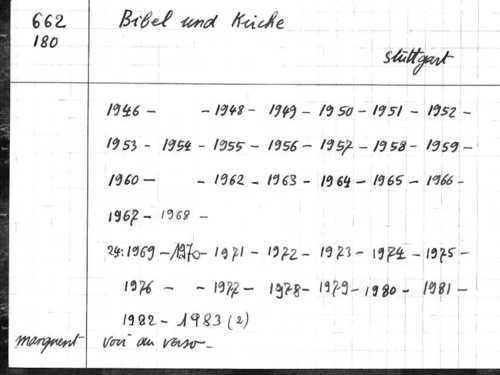 662 Bibel und Kirche
180
Stuttgart
1946 - - 1948 - 1949 - 1950 - 1951 - 1952 -
1953 - 1954 - 1955 - 1956 - 1957 - 1958 - 1959 -
1960 - - 1962 - 1963 - 1964 - 1965 - 1966 -
1967 - 1968 -
24: 1969 - 1970 - 1971 - 1972 - 1973 - 1974 - 1975 -
1976 - - 1977 - 1978 - 1979 - 1980 - 1981 -
1982 - 1983 (2)
manquent voir au verso -